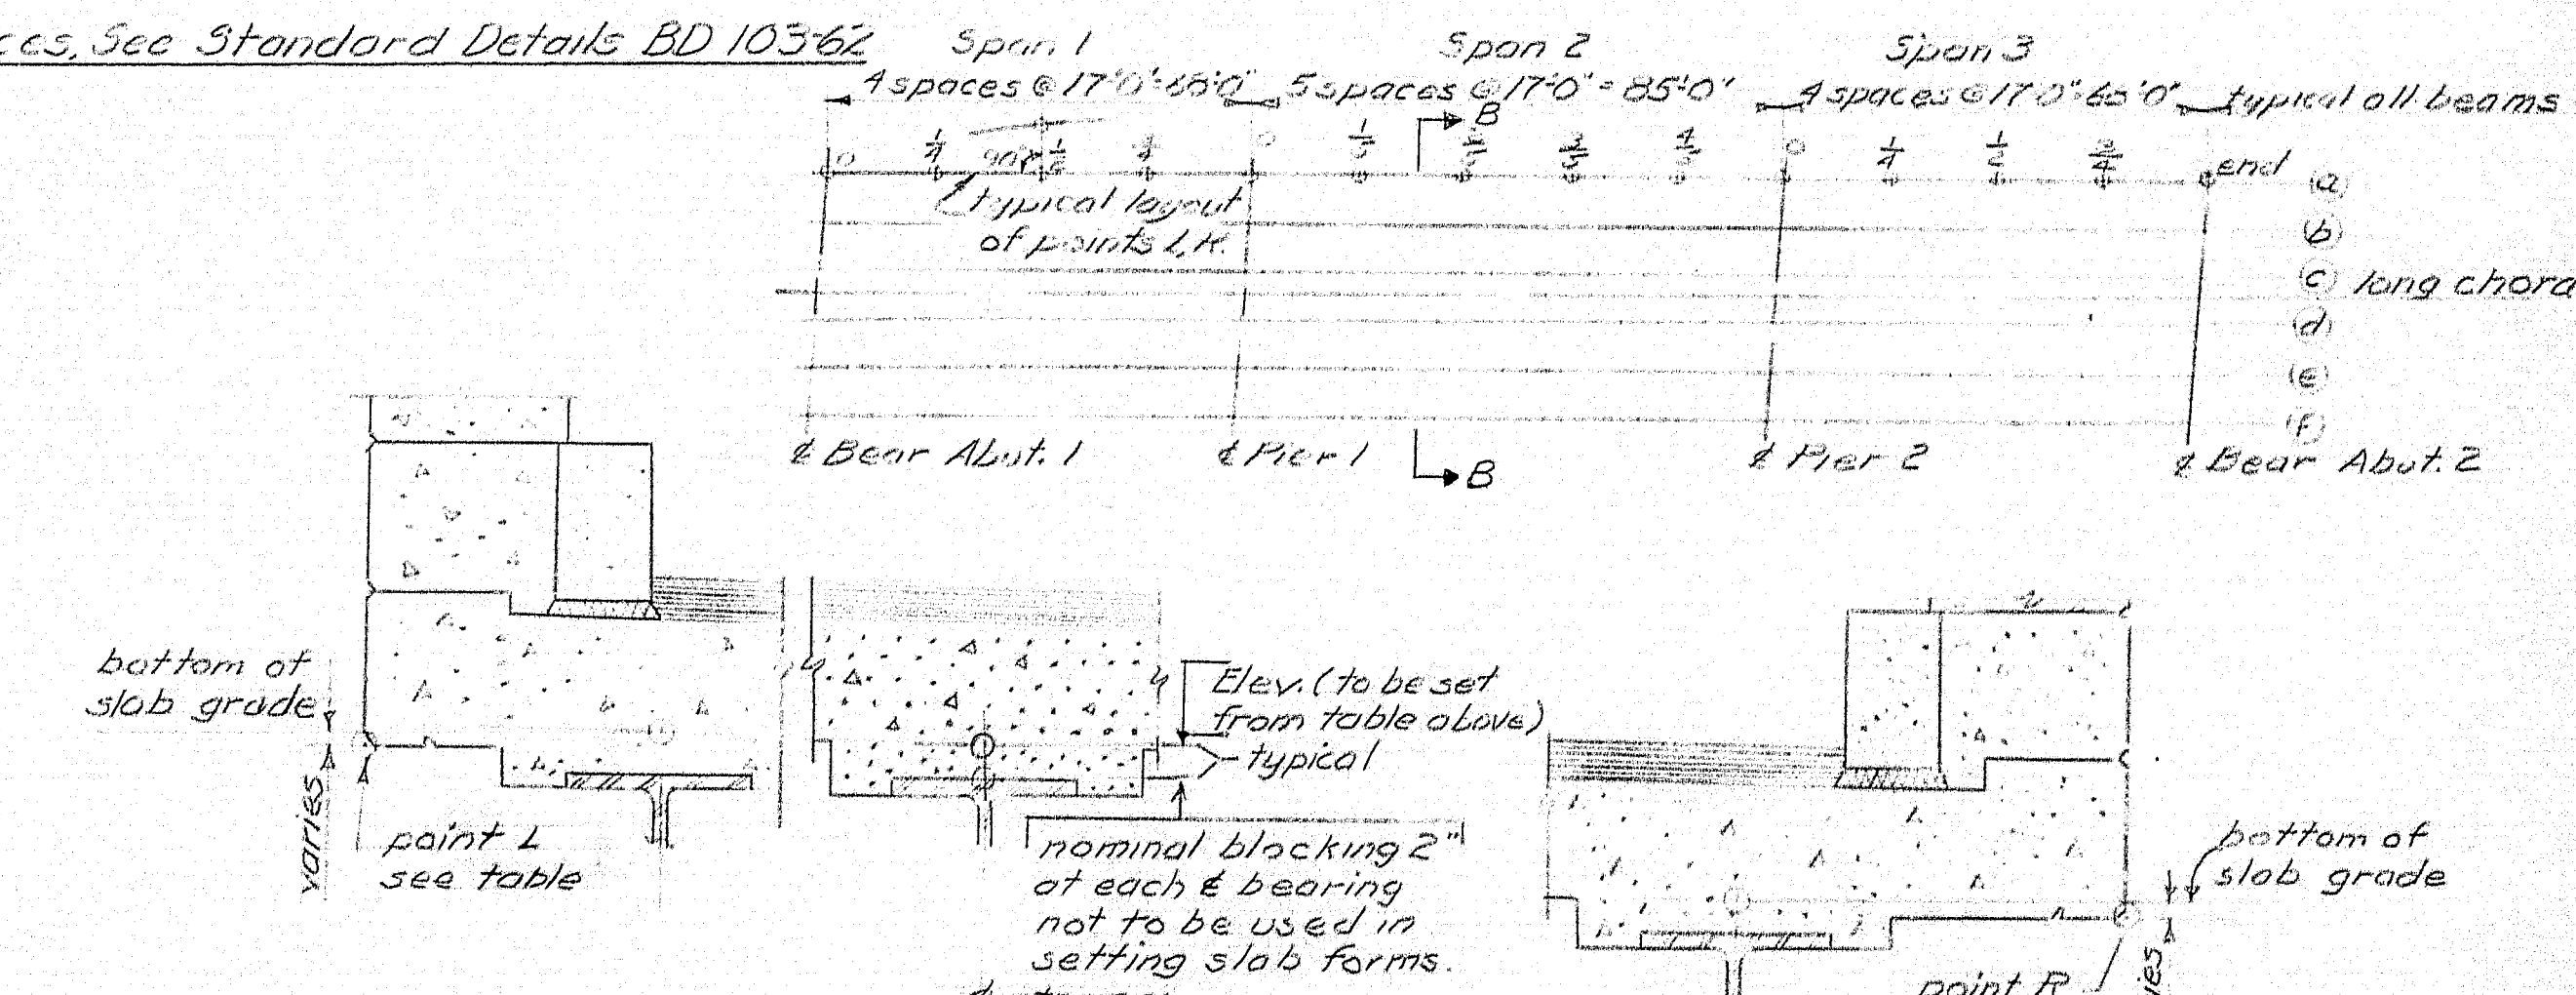 ces, See Standard Details BD 103-62
Span 1
Span 2
Span 3
4 spaces @ 17'-0" = 68'-0"
5 spaces @ 17'-0" = 85'-0"
4 spaces @ 17'-0" = 68'-0"
typical all beams
B
0 1/4 90° 1/2 3/4 0 1/5 2/5 3/5 4/5 0 1/4 1/2 3/4 end
(a)
typical layout
of points L, R.
(b)
(c) long chord
(d)
(e)
(f)
℄ Bear Abut. 1
℄ Pier 1
B
℄ Pier 2
℄ Bear Abut. 2
bottom of
slab grade
varies
point L
see table
Elev. (to be set
from table above)
typical
nominal blocking 2"
at each ℄ bearing
not to be used in
setting slab forms.
bottom of
slab grade
point R
ies